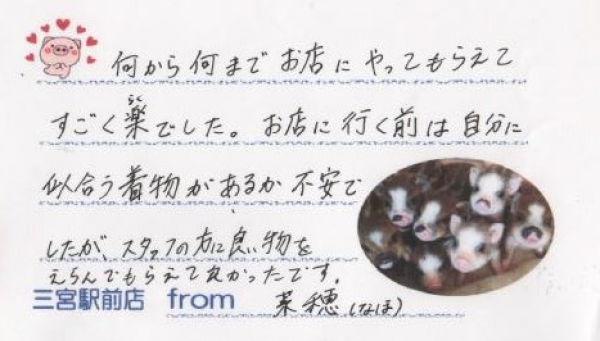 何から何までお店にやってもらえて
らく
すごく楽でした。お店に行く前は自分に
似合う着物があるか不安で
したが、スタッフの方に良い物を
えらんでもらえて良かったです。
三宮駅前店 from 菜穂(なほ)